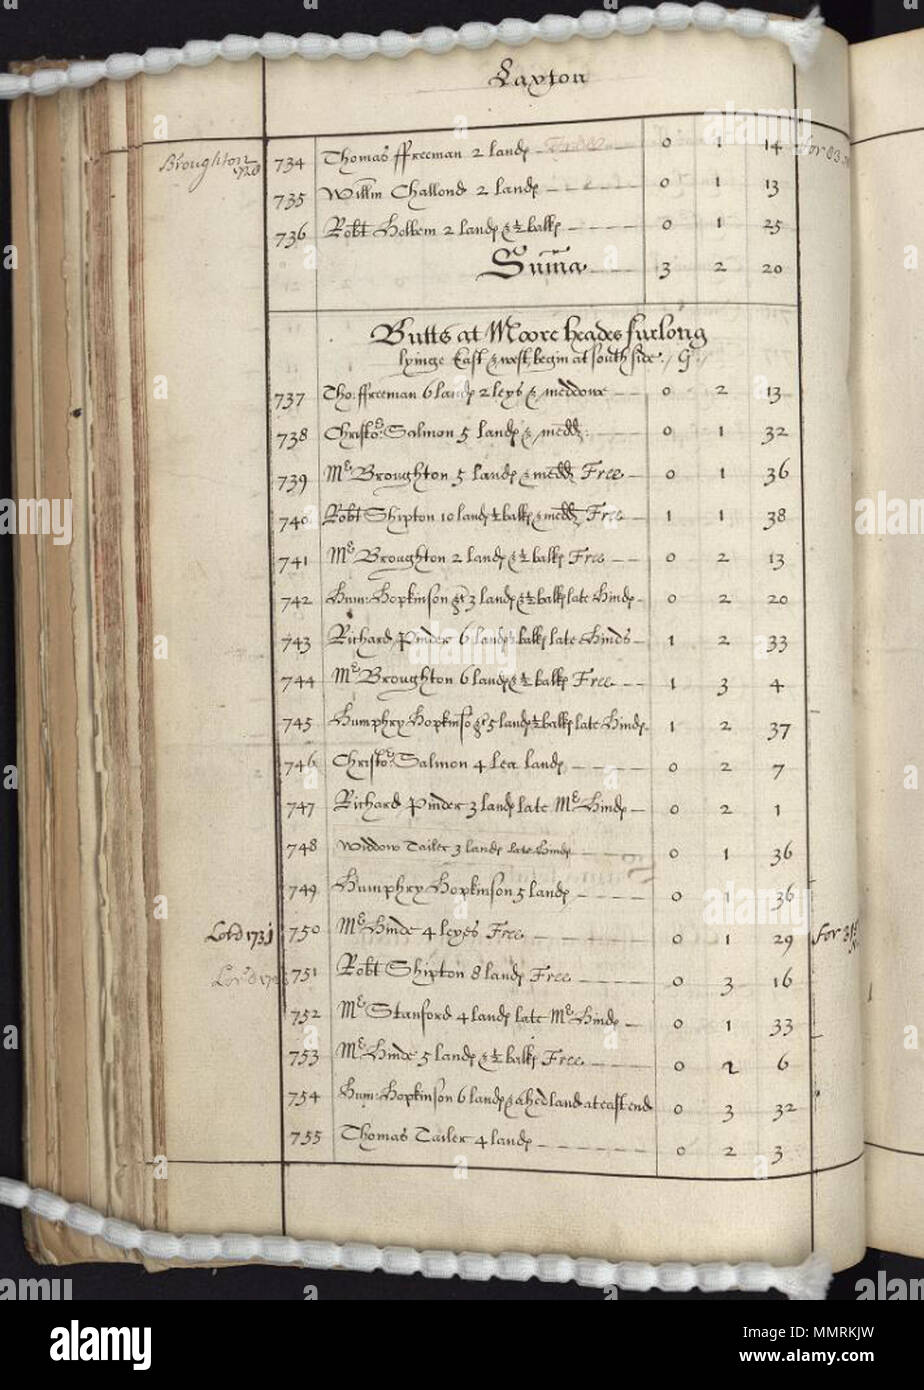 Laxton
Broughton 734 Thomas ffreeman 2 land℘ 0 1 14
735 Willm Challond 2 land℘ 0 1 13
736 Robt Holbem 2 land℘ & ½ balk℘ 0 1 25
Suma 3 2 20
Butts at Moore heades furlong
lyinge East & west, begin at south side. / G. /
737 Tho: ffreeman 6 land℘ 2 leys & meddowe 0 2 13
738 Christo: Salmon 5 land℘ & medd: 0 1 32
739 Mr Broughton 5 land℘ & medd Free 0 1 36
740 Robt Shipton 10 land℘ ½ balk℘ & medd Free 1 1 38
741 Mr Broughton 2 land℘ & ½ balk℘ Free 0 2 13
742 Hum: Hopkinson 3 land℘ & ½ balk℘ late Hind℘ 0 2 20
743 Richard Pinder 6 land℘ ½ balk℘ late Hinds 1 2 33
744 Mr Broughton 6 land℘ & ½ balk℘ Free 1 3 4
745 Humphry Hopkinso 5 land℘ ½ balk℘ late Hind℘ 1 2 37
746 Christo: Salmon 4 lea land℘ 0 2 7
747 Richard Pinder 3 land℘ late Mr Hind℘ 0 2 1
748 Widdow Tailer 3 land℘ late Hind℘ 0 1 36
749 Humphry Hopkinson 5 land℘ 0 1 36
Lord 1731 750 Mr Hinde 4 leyes Free 0 1 29 for
751 Robt Shipton 8 land℘ Free 0 3 16
752 Mr Stanford 4 land℘ late Mr Hind℘ 0 1 33
753 Mr Hinde 5 land℘ & ½ balk℘ Free 0 2 6
754 Hum: Hopkinson 6 land℘ & a hed land at east end 0 3 32
755 Thomas Tailer 4 land℘ 0 2 3
alamy
Image ID: MMRKJW
www.alamy.com